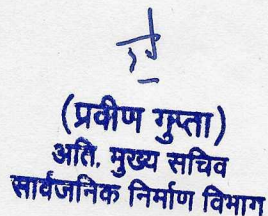 (प्रवीण गुप्ता)
अति. मुख्य सचिव
सार्वजनिक निर्माण विभाग